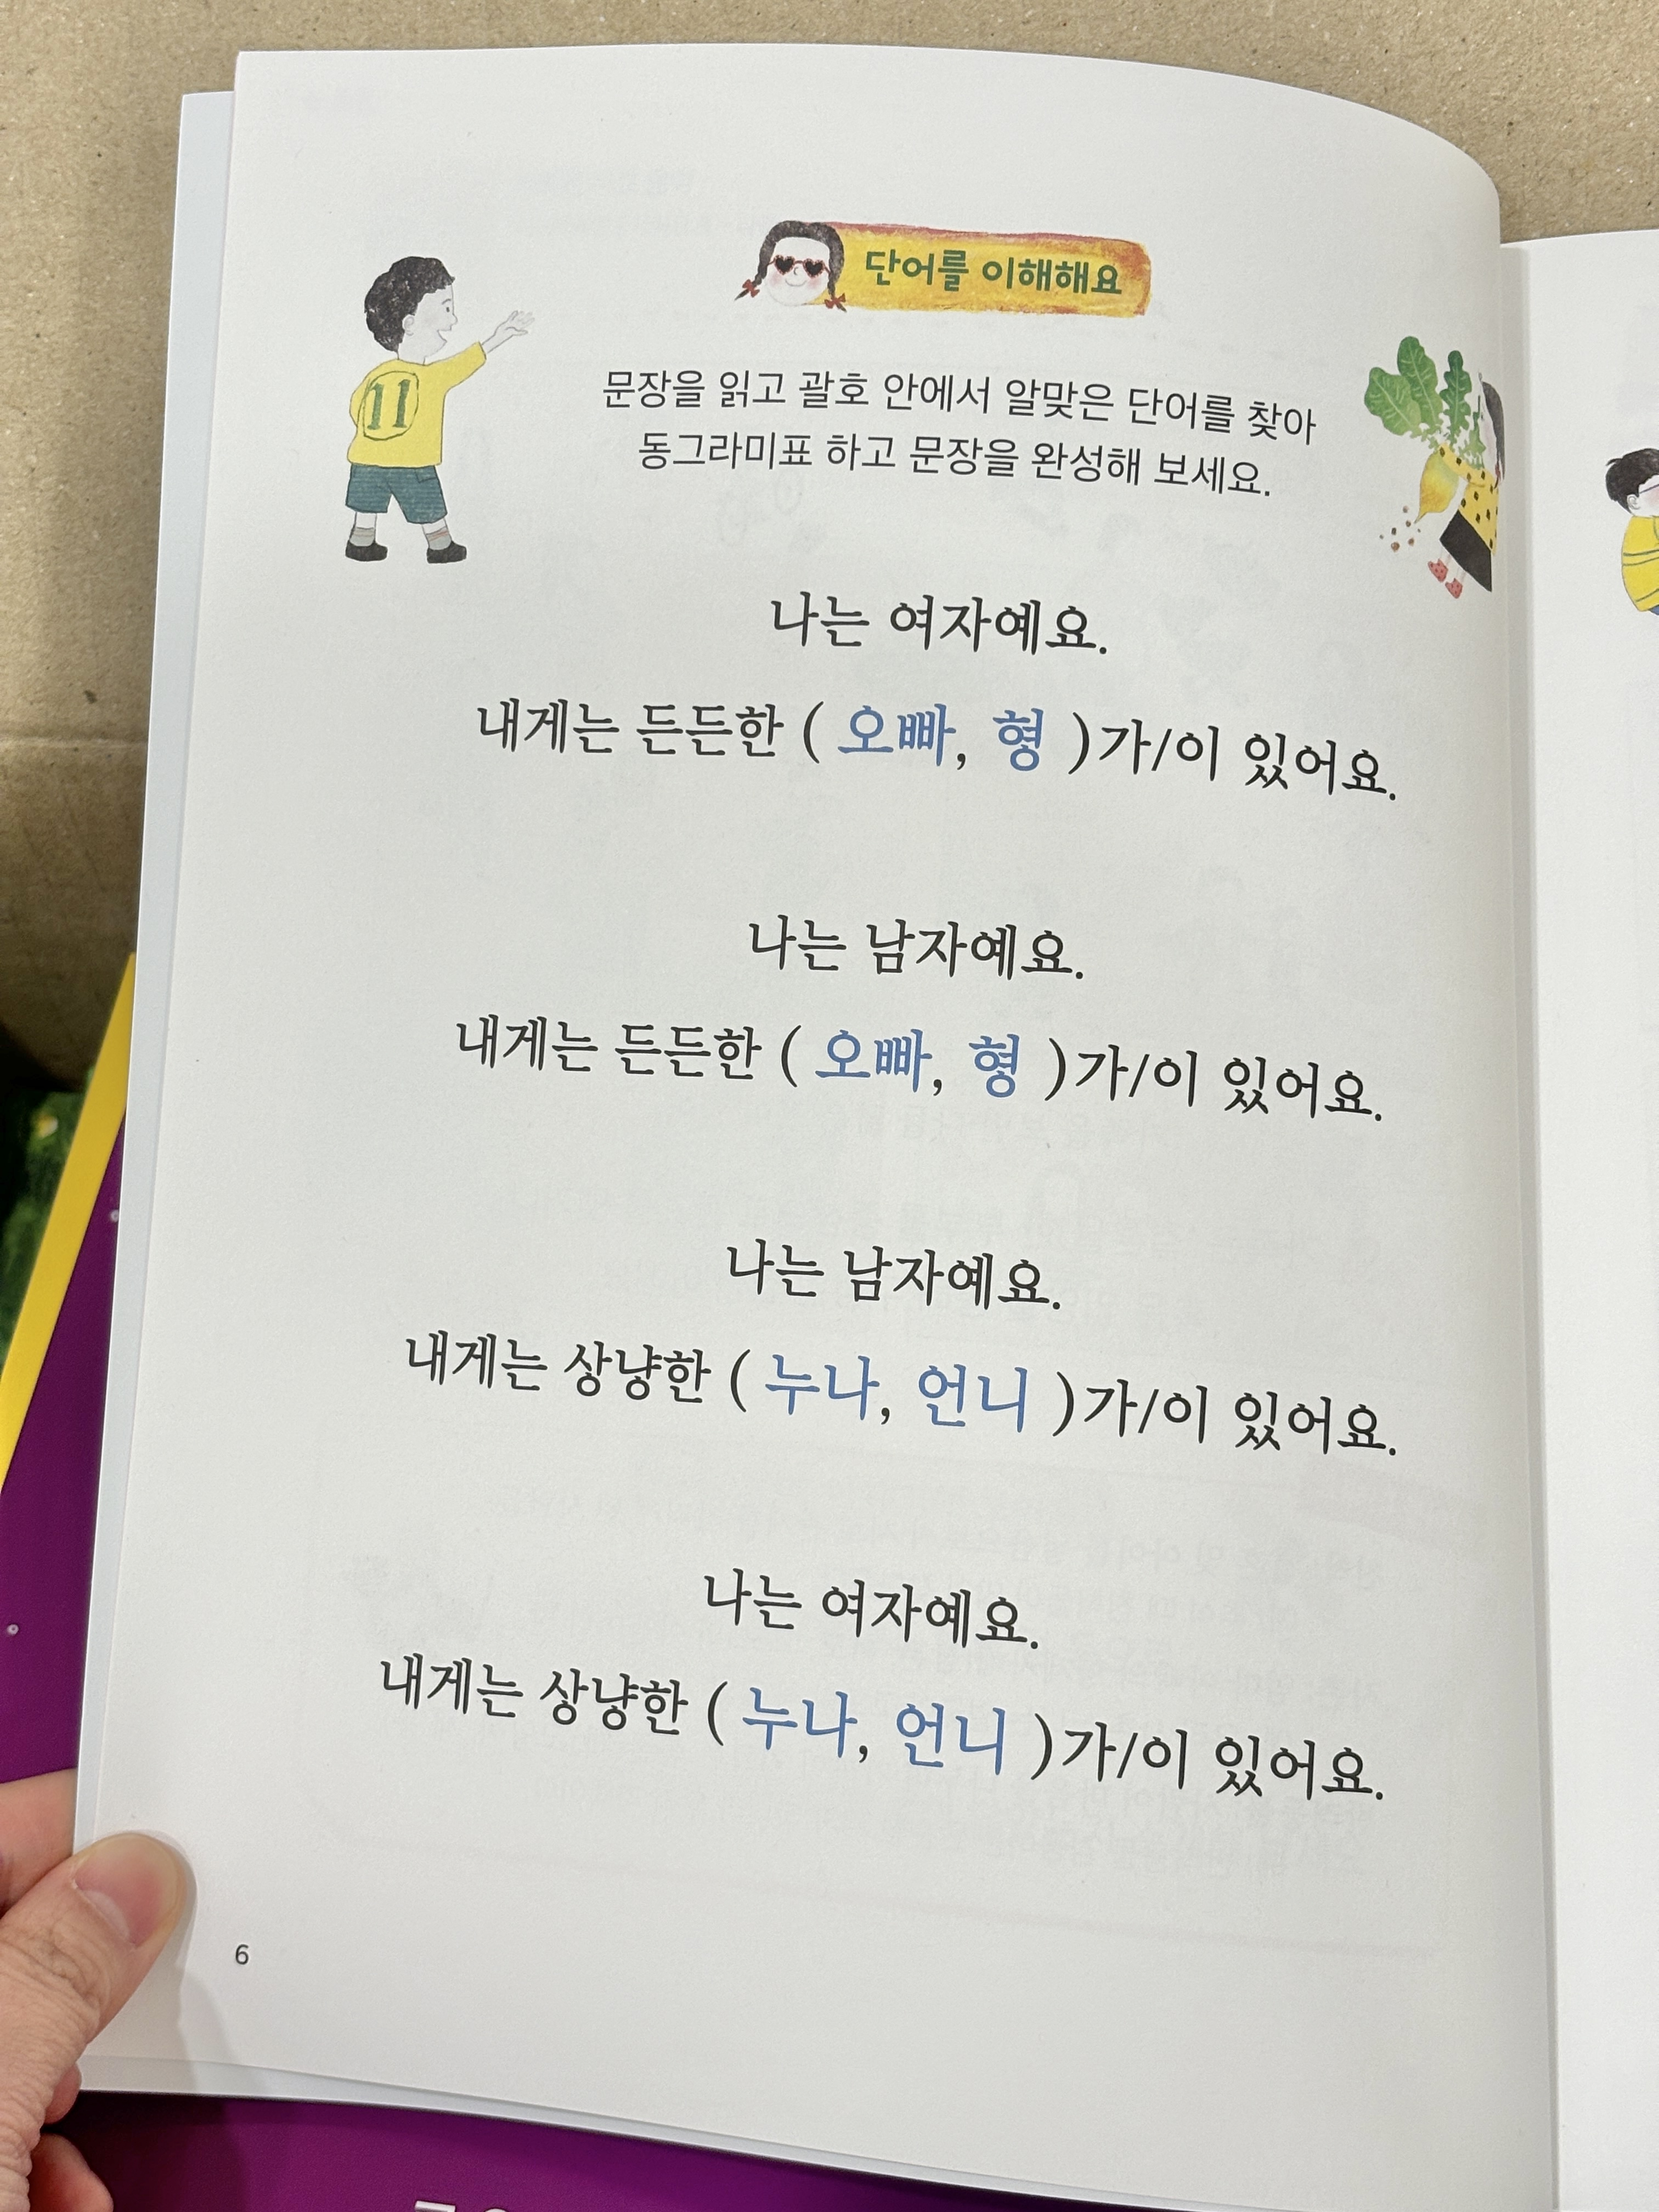 단어를 이해해요
11
문장을 읽고 괄호 안에서 알맞은 단어를 찾아
동그라미표 하고 문장을 완성해 보세요.
나는 여자예요.
내게는 든든한 ( 오빠, 형 )가/이 있어요.
나는 남자예요.
내게는 든든한 ( 오빠, 형 )가/이 있어요.
나는 남자예요.
내게는 상냥한 ( 누나, 언니 )가/이 있어요.
나는 여자예요.
내게는 상냥한 ( 누나, 언니 )가/이 있어요.
6